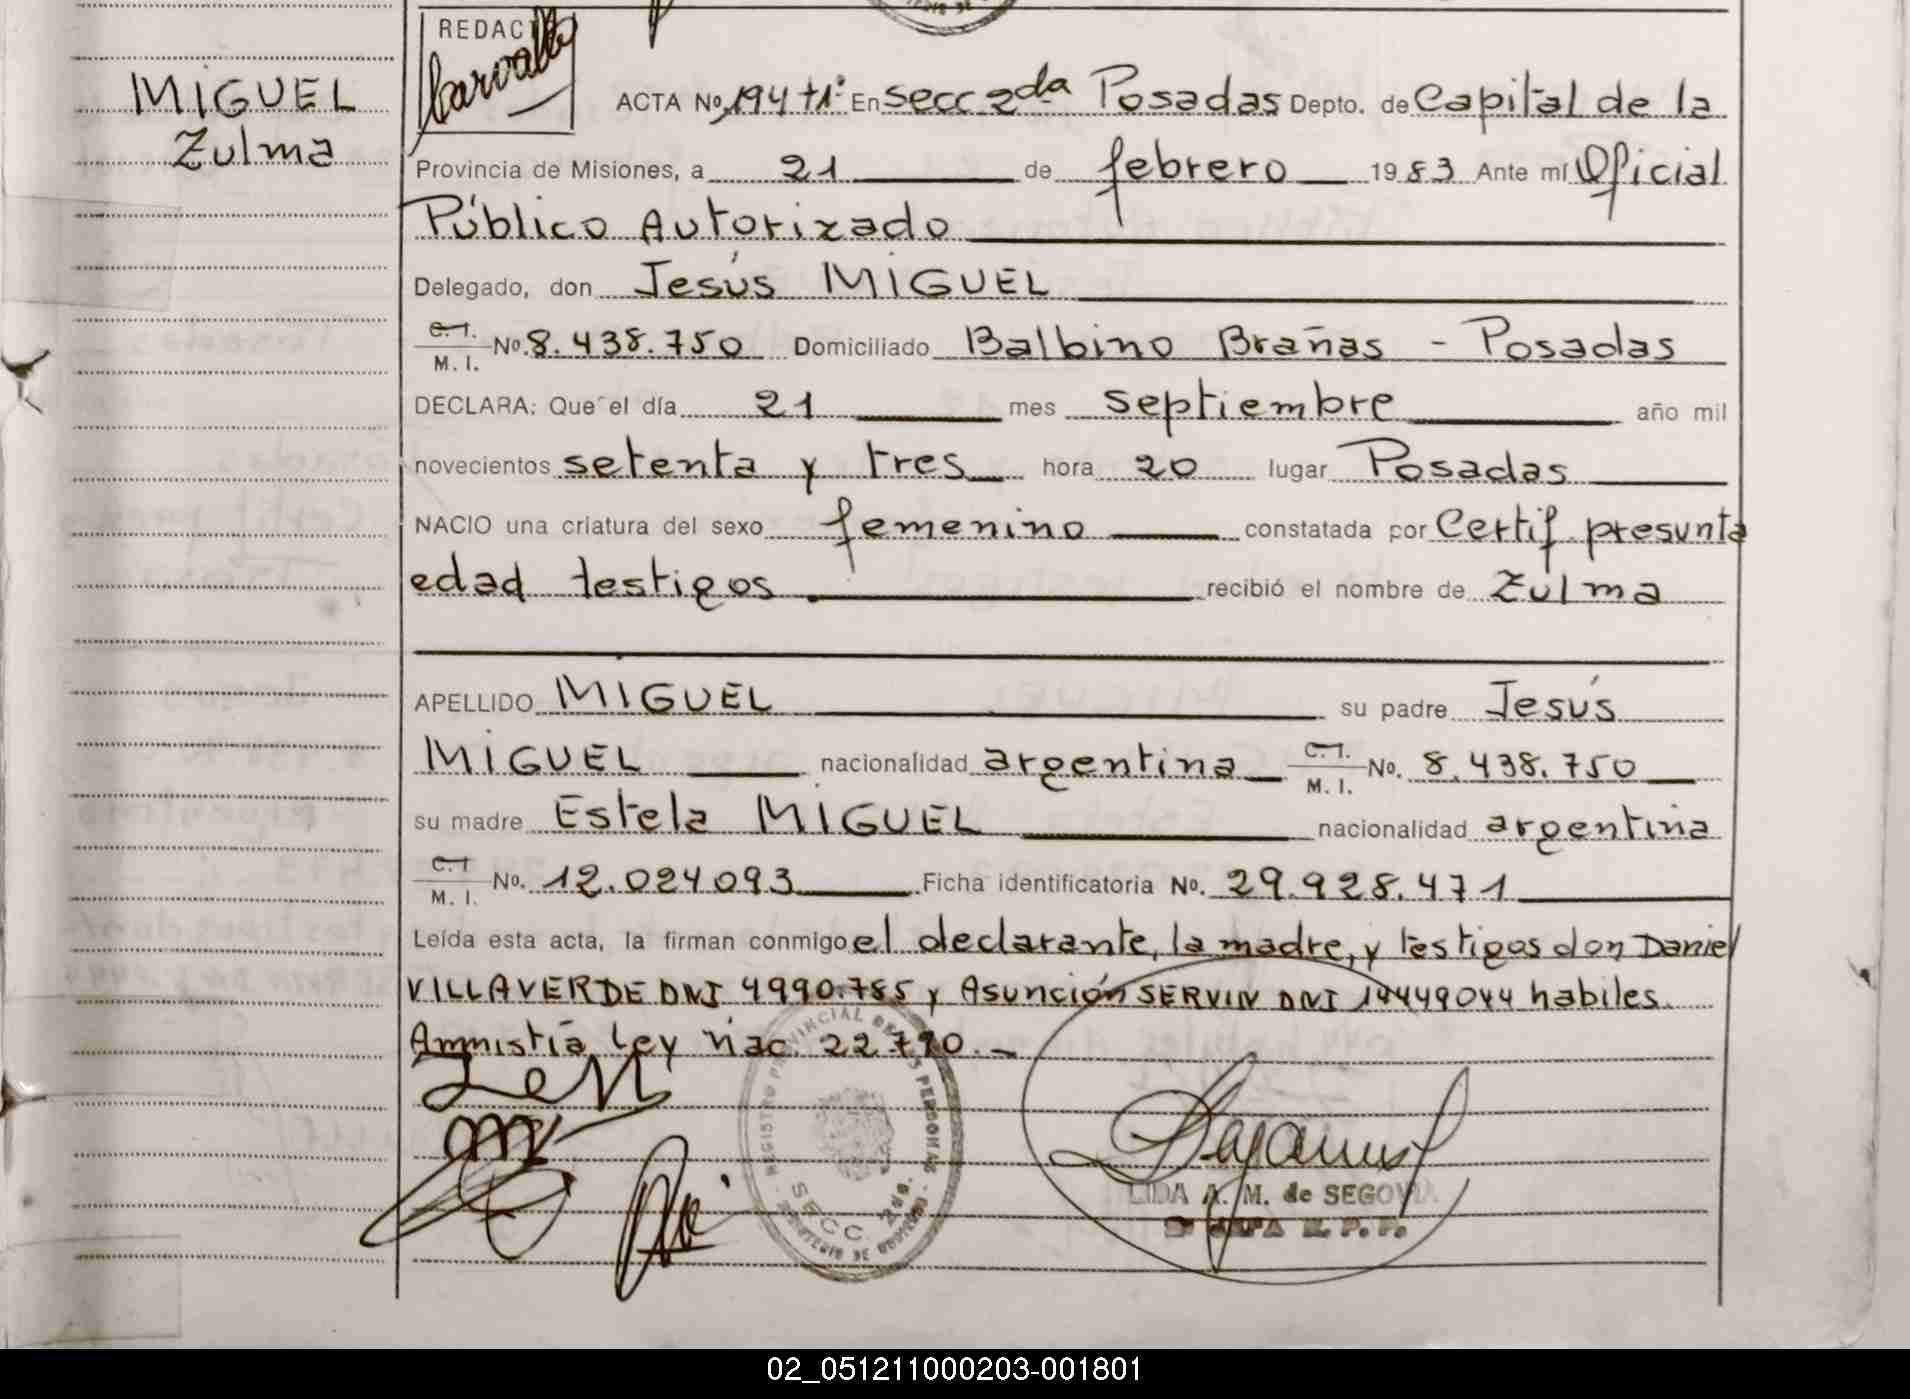 MIGUEL
Zulma
REDAC
Carvallo
ACTA No. 194 t1° En secc 2da Posadas Depto. de Capital de la
Provincia de Misiones, a 21 de febrero 1983 Ante mí Oficial
Público Autorizado
Delegado, don Jesús MIGUEL
C.I. M. I. No. 8.438.750 Domiciliado Balbino Brañas - Posadas
DECLARA: Que el día 21 mes septiembre año mil
novecientos setenta y tres hora 20 lugar Posadas
NACIO una criatura del sexo femenino constatada por Certif. presunta
edad testigos recibió el nombre de Zulma
APELLIDO MIGUEL su padre Jesús
MIGUEL nacionalidad argentina C.I. M. I. No. 8.438.750
su madre Estela MIGUEL nacionalidad argentina
C.I M. I. No. 12.024.093 Ficha identificatoria No. 29.928.471
Leída esta acta, la firman conmigo el declarante, la madre, y testigos don Daniel
VILLAVERDE DNI 4990.785 y Asunción SERVIN DNI 14449044 habiles
Amnistia Ley nac. 22.790.-
REGISTRO PROVINCIAL DE LAS PERSONAS
SECC. 2da.
MINISTERIO DE GOBIERNO
LIDA A. M. de SEGOVIA
JEFA R. P. P.
02_051211000203-001801